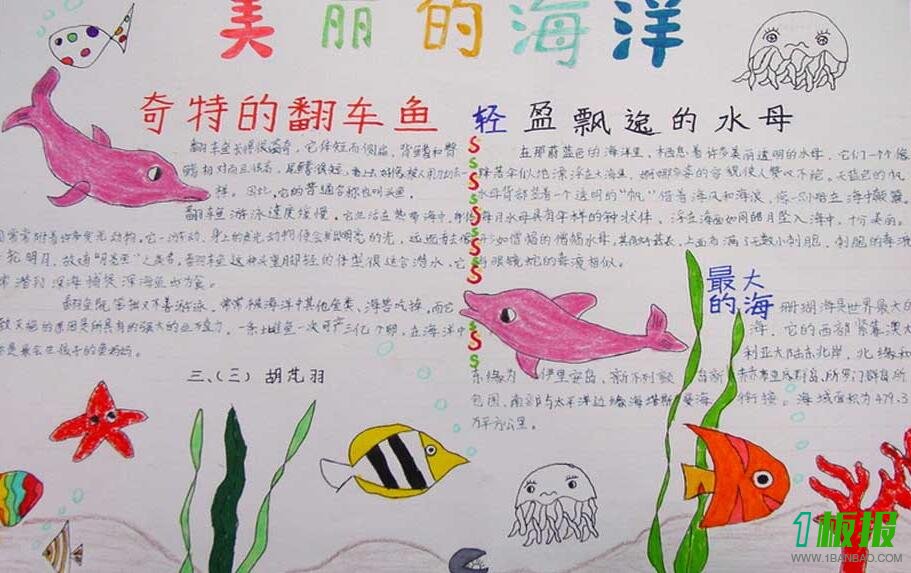 美丽的海洋
奇特的翻车鱼
翻车鱼长得很离奇,它体短而侧扁,背鳍和臀
鳍相对而且很高,尾鳍很短,看上去好像被人用刀切去一
样。因此,它的普通名称也叫头鱼。
翻车鱼游泳速度缓慢,它生活在热带海中,身体
周常常附着许多发光动物。它一游动,身上的发光动物便会发出明亮的光,远远看去像
一轮明月,故有“月亮鱼”之美名。翻车鱼这种头重脚轻的体型很适合潜水,它
常潜到深海捕捉深海鱼虾为食。
翻车鱼笨拙又不善游泳,常常被海洋中其他鱼类、海兽吃掉。而它
致灭绝的原因是所具有的强大的生殖力,一条雌鱼一次可产三亿个卵,在海洋中
是最会生孩子的鱼妈妈。
三、(三) 胡芃羽
轻盈飘逸的水母
在那蔚蓝色的海洋里,栖息着许多美丽透明的水母,它们一个个像
降落伞似地漂浮在大海里,婀娜多姿的容貌使人赞叹不绝。天蓝色的帆
水母背部竖着一个透明的“帆”借着海风和海浪,像一只小船在海中颠簸。
月水母具有伞样的钟状体,浮在海面如同皓月坠入海中,十分美丽。
如僧帽的僧帽水母,其触须甚长,上面布满了无数小刺胞,刺胞的毒液
与眼镜蛇的毒液相似。
SSSSSSSSSSSSS
最大的海
珊瑚海是世界最大的
海,它的西部紧靠澳大
利亚大陆东北岸,北缘和
东缘为伊里安岛、新不列颠岛、所罗门群岛所
包围,南部与太平洋边缘海塔斯曼海衔接。海域面积为479.3
万平方公里。
1板报
WWW.1BANBAO.COM